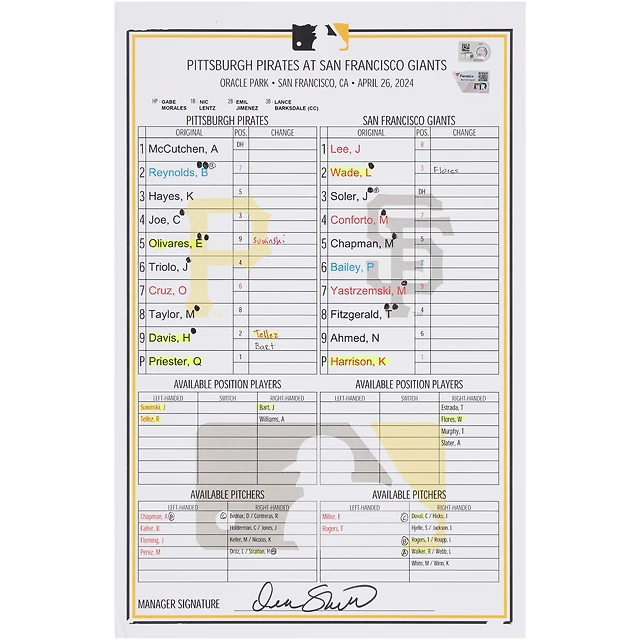 PITTSBURGH PIRATES AT SAN FRANCISCO GIANTS
ORACLE PARK • SAN FRANCISCO, CA • APRIL 26, 2024
HP GABE MORALES 1B NIC LENTZ 2B EMIL JIMENEZ 3B LANCE BARKSDALE (CC)
PITTSBURGH PIRATES SAN FRANCISCO GIANTS
ORIGINAL POS. CHANGE ORIGINAL POS. CHANGE
1 McCutchen, A DH 1 Lee, J 8
2 Reynolds, B 7 2 Wade, L 3 Flores
3 Hayes, K 5 3 Soler, J DH
4 Joe, C 3 4 Conforto, M 7
5 Olivares, E 9 Suwinski 5 Chapman, M 5
6 Triolo, J 4 6 Bailey, P 2
7 Cruz, O 6 7 Yastrzemski, M 9
8 Taylor, M 8 8 Fitzgerald, T 4
9 Davis, H 2 Tellez 9 Ahmed, N 6
Bart
P Priester, Q 1 P Harrison, K 1
AVAILABLE POSITION PLAYERS AVAILABLE POSITION PLAYERS
LEFT-HANDED SWITCH RIGHT-HANDED LEFT-HANDED SWITCH RIGHT-HANDED
Suwinski, J Bart, J Estrada, T
Tellez, R Williams, A Flores, W
Murphy, T
Slater, A
AVAILABLE PITCHERS AVAILABLE PITCHERS
LEFT-HANDED RIGHT-HANDED LEFT-HANDED RIGHT-HANDED
Chapman, A Bednar, D / Contreras, R Miller, E Doval, C / Hicks, J
Falter, B Holderman, C / Jones, J Rogers, T Hjelle, S / Jackson, L
Fleming, J Keller, M / Nicolas, K Rogers, J / Roupp, L
Perez, M Ortiz, L / Stratton, H Walker, R / Webb, L
White, M / Winn, K
MANAGER SIGNATURE